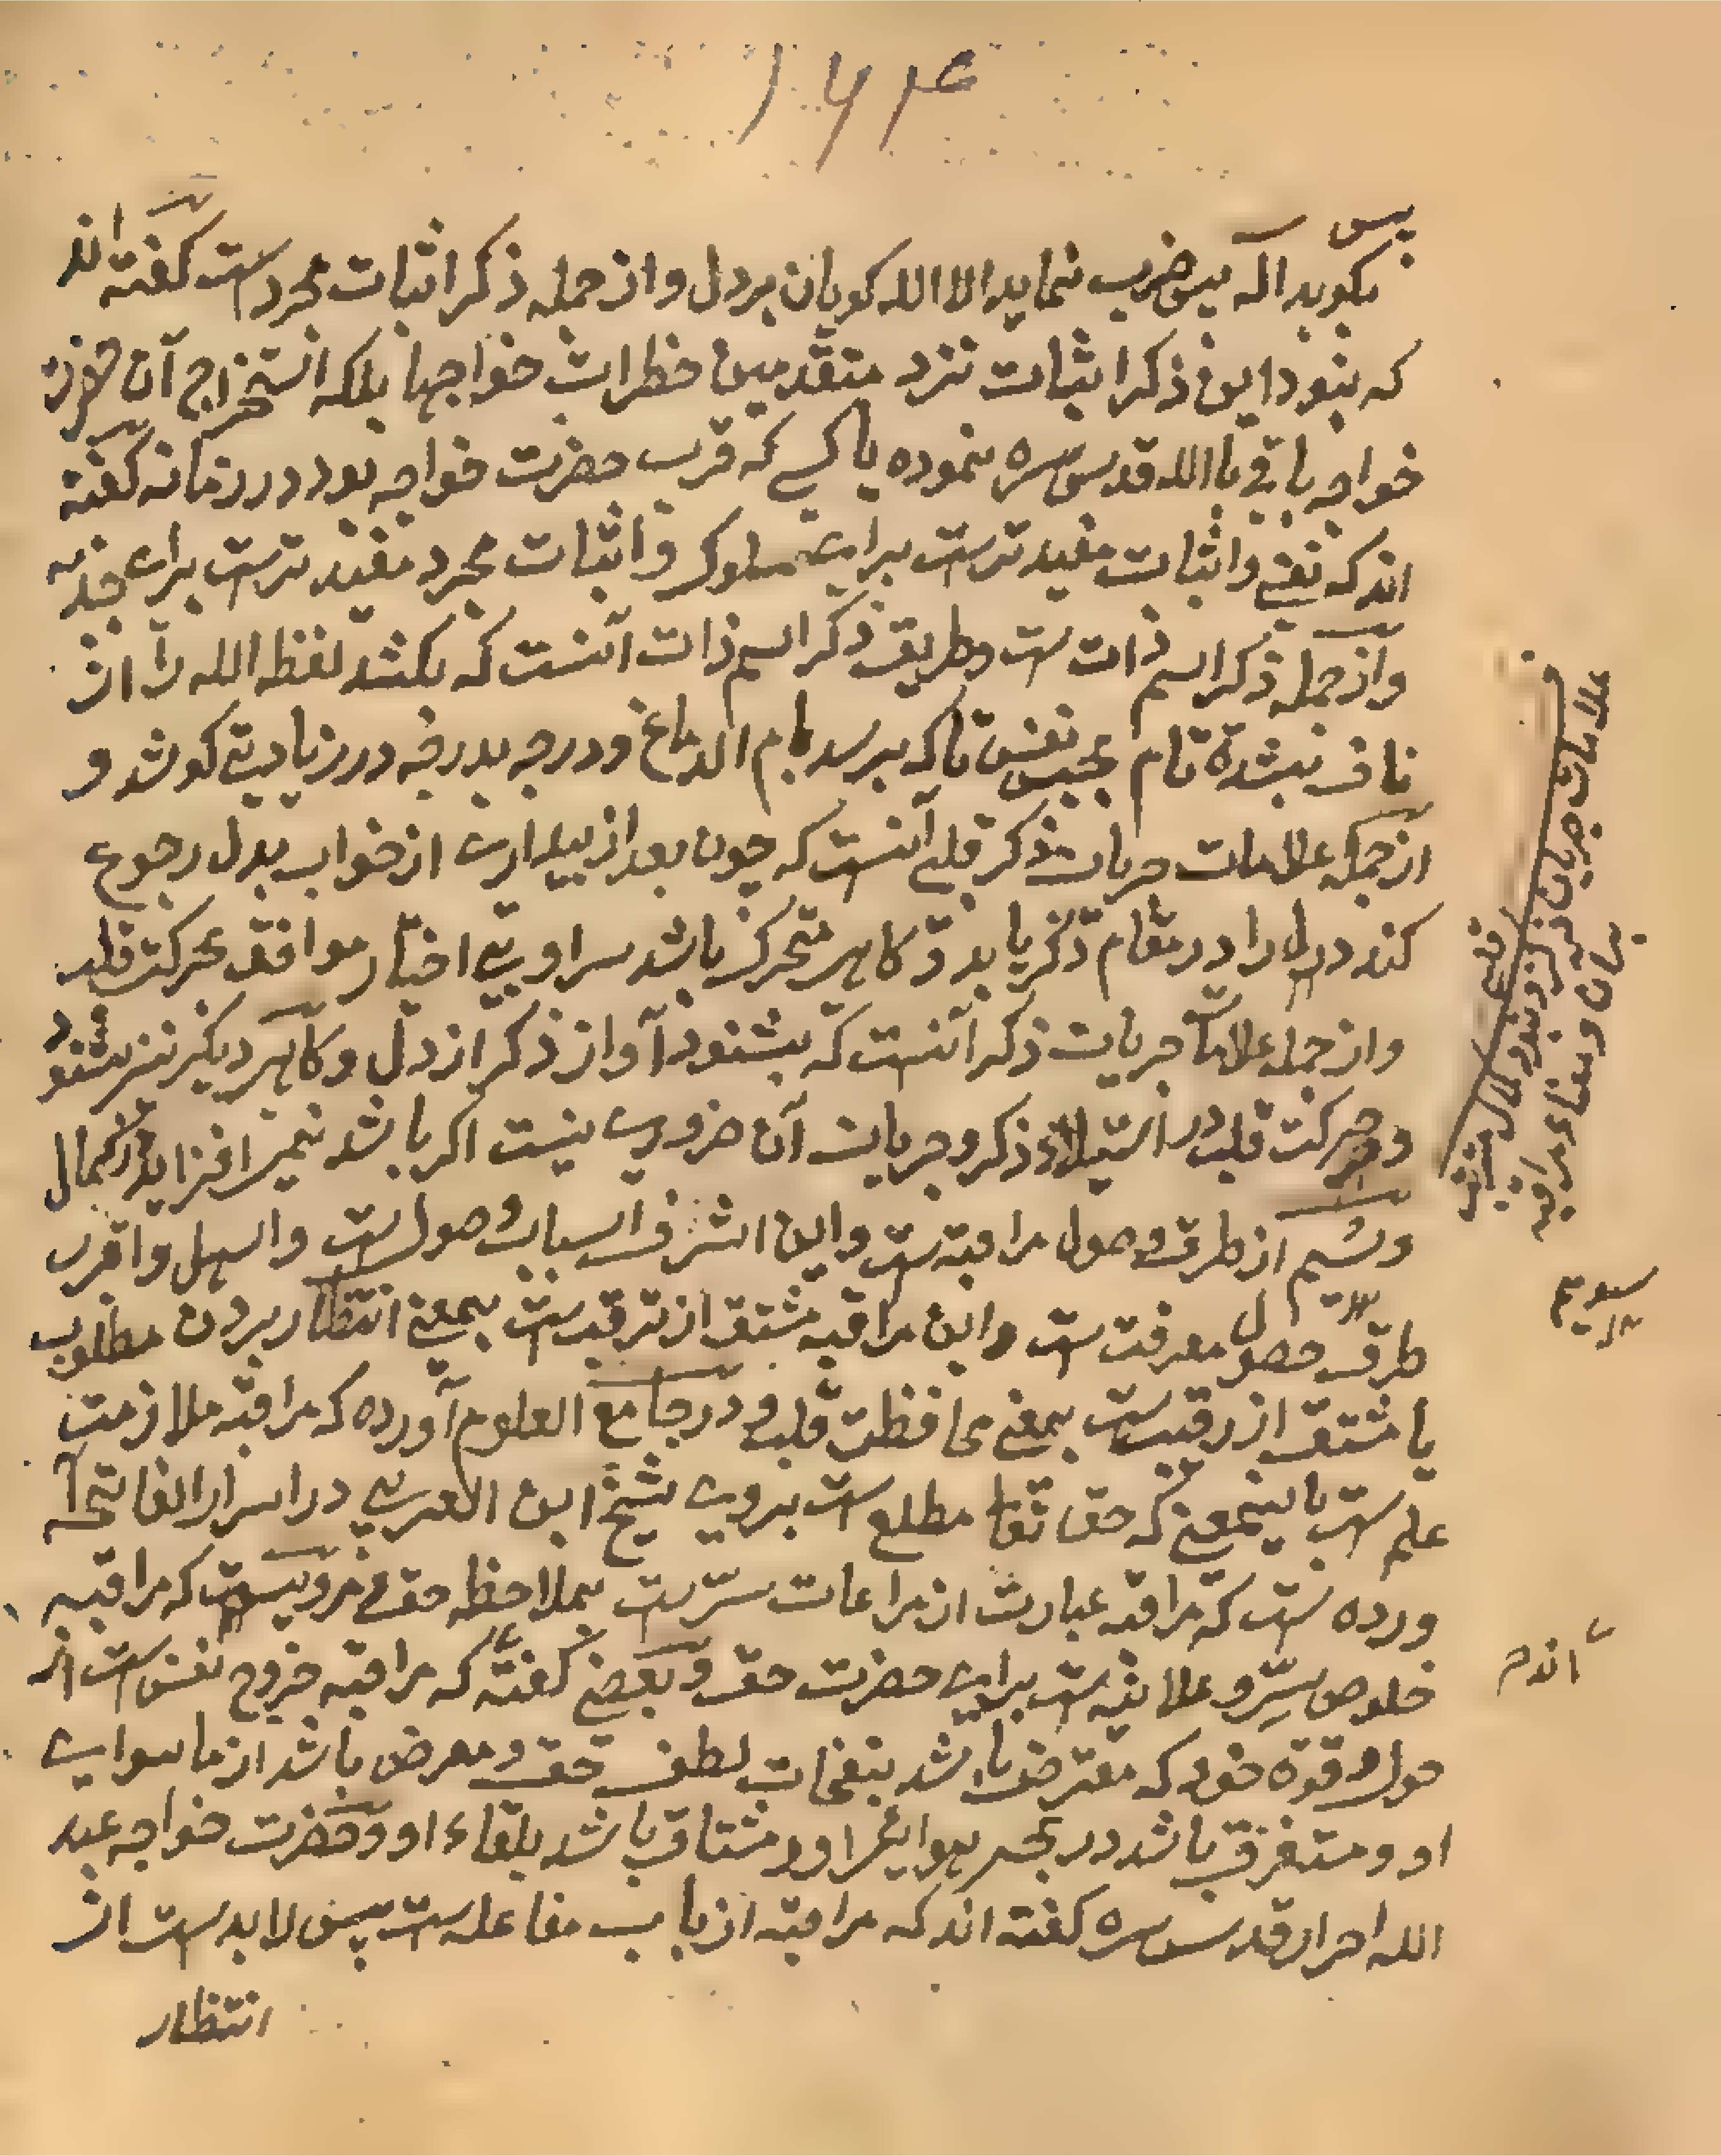 ۱۶۴
پس
بکوید اله پس ضرب نماید الا الله کویان بر دل و از جمله ذکر اثبات مجرد ست کفته اند
که بنود این ذکر اثبات نزد متقدمین حظرات خواجها بلکه استخراج آن حضرت
خواجه باقی باالله قدس سره نموده یا کسے که قرب حضرت خواجه بود در زمانه کفته
اند که نفے و اثبات مفید ترست براے سلوک و اثبات مجرد مفید ترست براے جذبه
و از جمله ذکر اسم ذات ست و طریق ذکر اسم ذات آنست که بکشد لفظ الله را از
ناف بشدة تام بحبس نفس تا که برسد بام الدماغ و درجه بدرجه در زیادیتے کوشد و
از جمله علامات جریان ذکر قلبے آنست که چون بعد از بیدارے از خواب بدل رجوع
کند دل را در مقام ذکر یابد و کاہے متحرک باشد سر او بے اختیار موافق حرکت قلب
و از جمله علامات جریان ذکر آنست که بشنود آواز ذکر از دل و کاہے دیکر نیز بشنود
و حرکت قلب در استیلاء ذکر و جریان آن ضرورے نیست اکر باشد نمیر افزاید در کمال
و سیم از طرق وصول مراقبه ست و این اشرف اسباب وصول ست و اسهل و اقرب
طرق حصول معرفت ست و این مراقبه مشتق از ترقب ست بمعنے انتظار بردن مطلوب
یا مشتق از رقیب ست بمعنے محافظت قلب و در جامع العلوم آورده که مراقبه ملازمت
علم ست باینمعنے که حق تعا مطلع ست بروے شیخ ابن العربے در اسرار الفاتحه آ
ورده ست که مراقبه عبارت از مراعات سرّ ست بملاحظه حق و مرویست که مراقبه
خلوص سرّ و علانیه ست براے حضرت حق و بعضے کفته که مراقبه خروج نفس ست از
حول و قوة خود که معترض باشد بنفحات لطف حق و معرض باشد از ماسواے
او و مستغرق باشد در بحر هواے او و مشتاق باشد بلقاء او و حضرت خواجه عبید
الله احرار قدس سره کفته اند که مراقبه از باب مفاعله ست پس لابد ست از
انتظار
علامات جریان ذکر
بیان و معناء مراقبه
سیویم
اندم